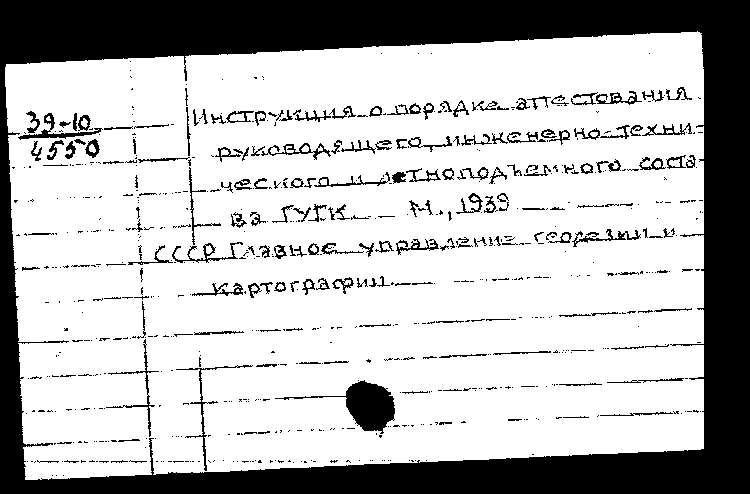 39-10
4550
Инструкция о порядке аттестования
руководящего, инженерно-техни-
ческого и летноподъемного соста-
ва ГУГК. М., 1939
СССР Главное управление геодезии и
картографии.